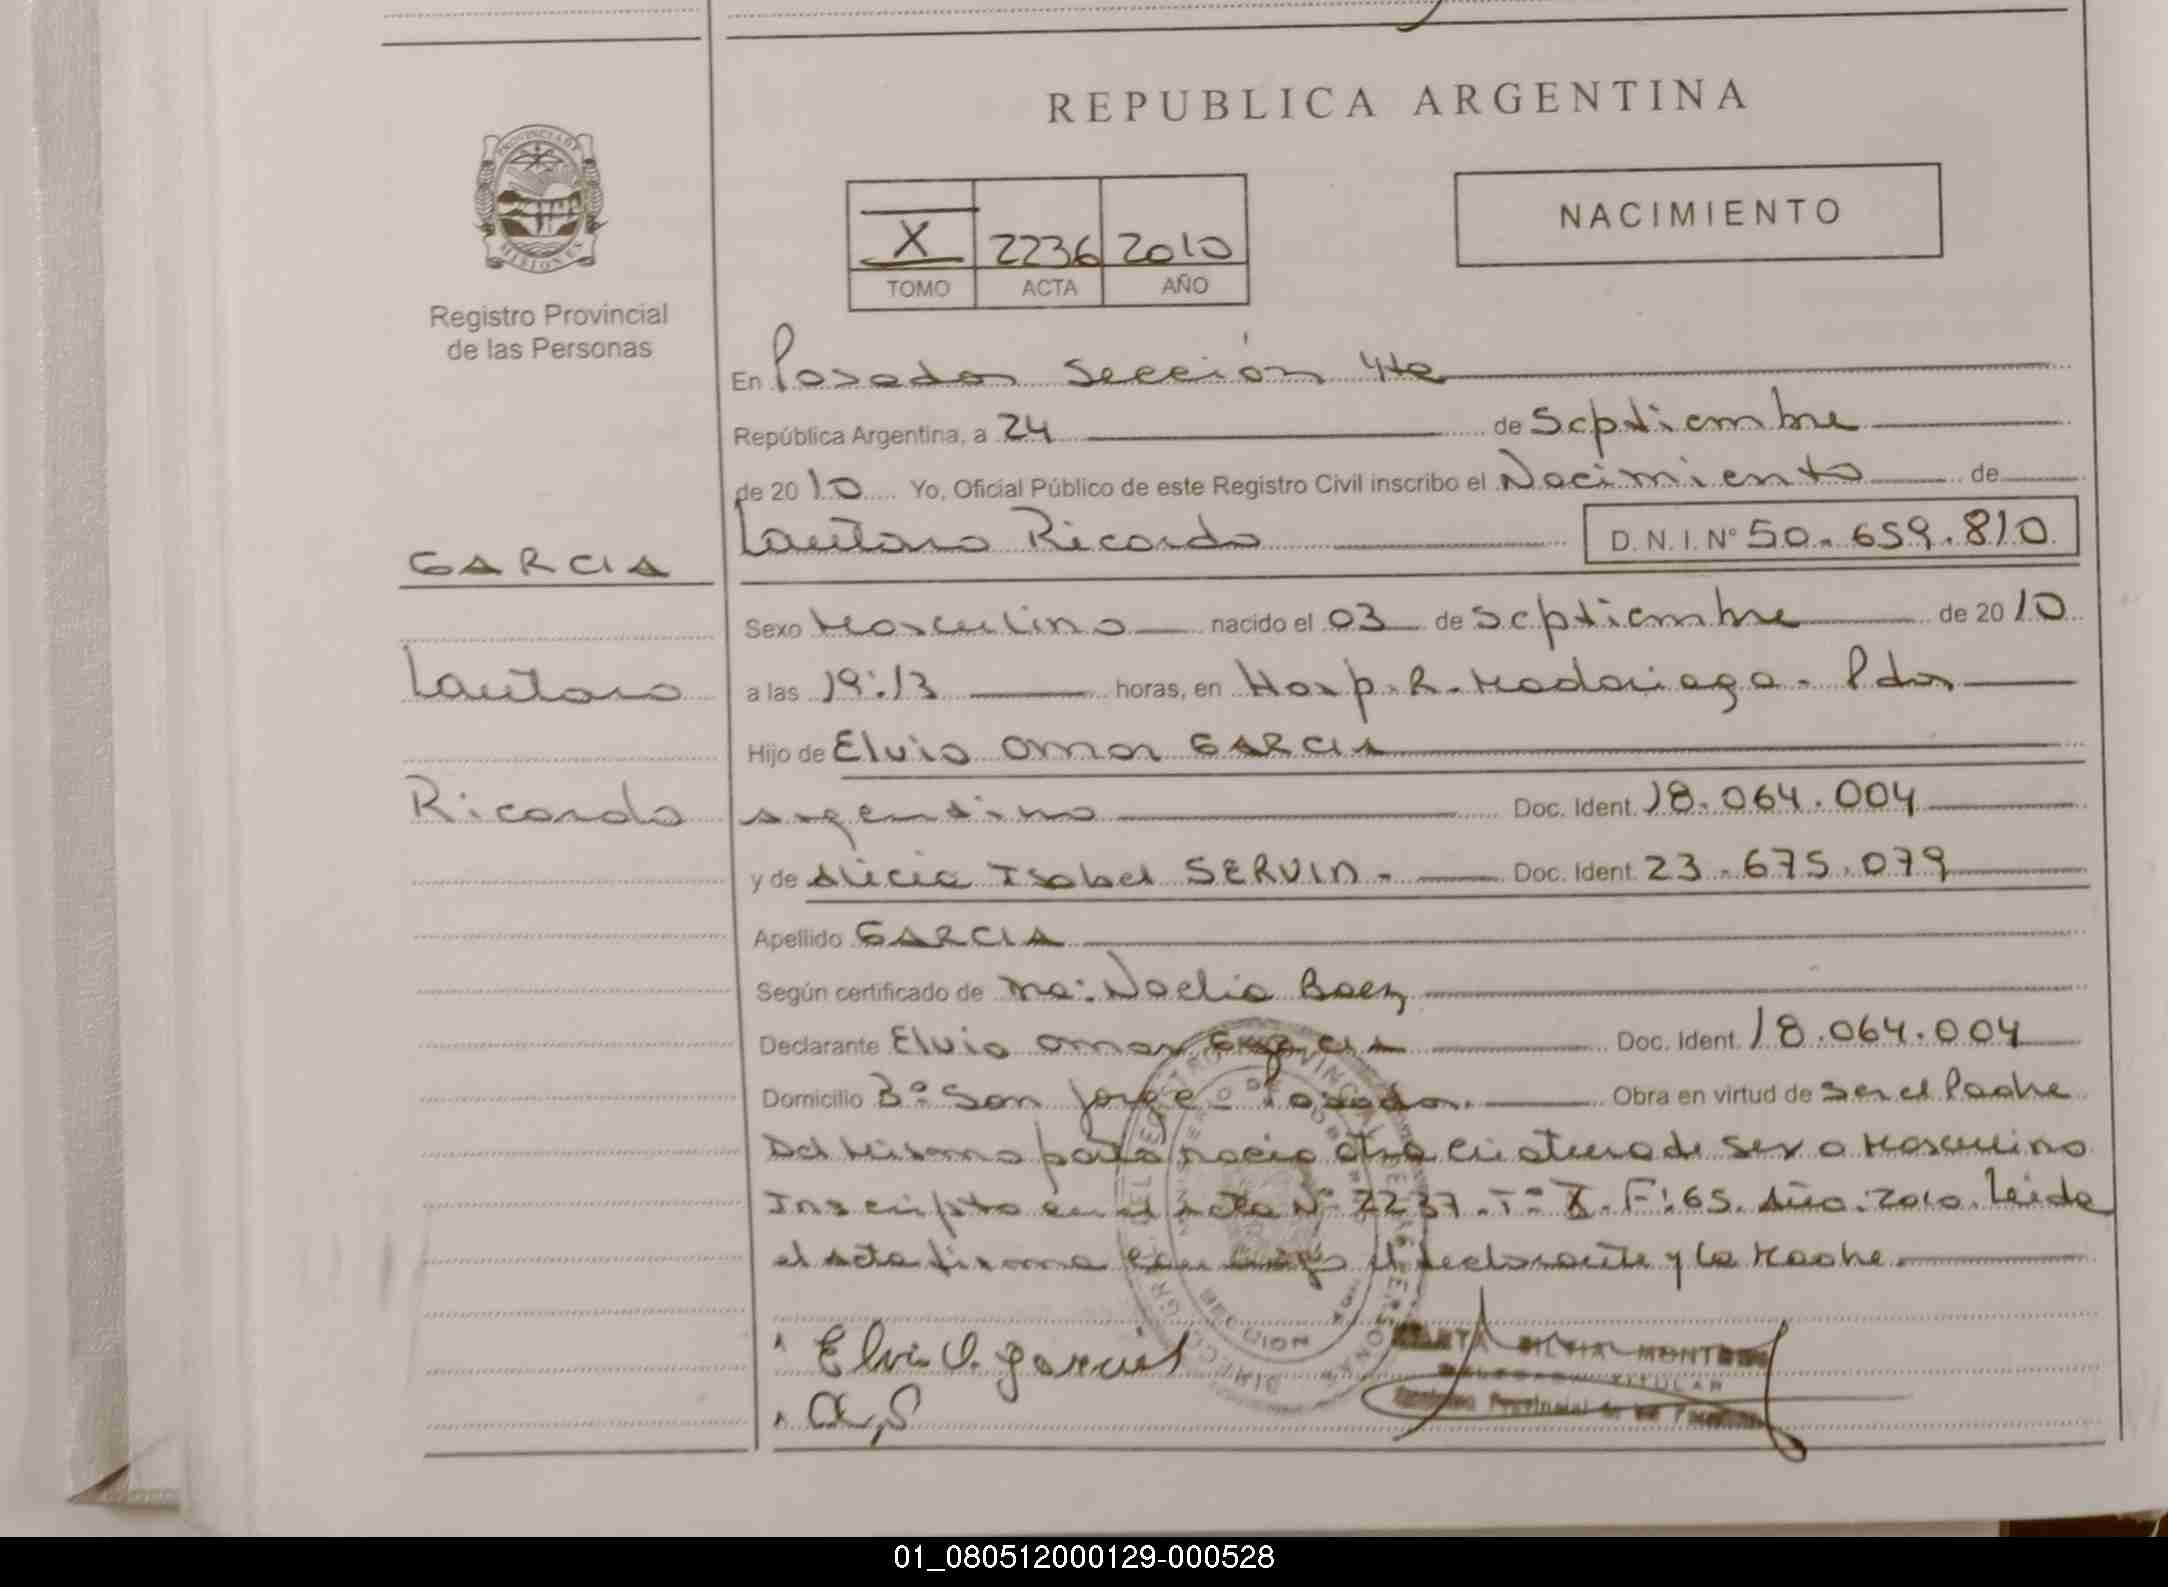 REPUBLICA ARGENTINA
PROVINCIA DE MISIONES
Registro Provincial
de las Personas
NACIMIENTO
X 2236 2010
TOMO ACTA AÑO
En Posadas Sección 4ta
República Argentina, a 24 de Septiembre
de 2010 Yo, Oficial Público de este Registro Civil inscribo el Nacimiento de
Lautaro Ricardo D.N.I. Nº 50.659.810
GARCIA
Lautaro
Ricardo
Sexo Masculino nacido el 03 de Septiembre de 2010
a las 19:13 horas, en Hosp. R. Madariaga. Pdas
Hijo de Elvio Omar GARCIA
Argentino Doc. Ident. 18.064.004
y de Alicia Isabel SERVIN. Doc. Ident. 23.675.079
Apellido GARCIA
Según certificado de Ma: Noelia Baez
Declarante Elvio Omar GARCIA Doc. Ident. 18.064.004
Domicilio Bº San Jorge - Posadas. Obra en virtud de Ser el Padre
Del Mismo parto nacio otra Criatura de sexo Masculino
Inscripto en el Acta Nº 2237. Tº X. Fº: 65. Año: 2010. Leida
el Acta firma el declarante y la Madre.
Elvio O. Garcia
A, S
SILVIA
TITULAR
Provincial de
SECCION
01_080512000129-000528